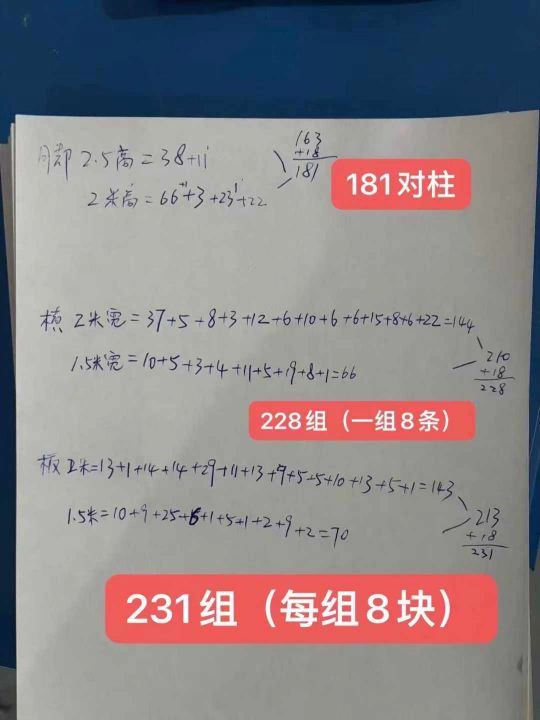 2.5高=38+11
2米高=66+1+3+23+1+22
163
+18
181
181对柱
横 2米宽=37+5+8+3+12+6+10+6+6+15+8+6+22=144
1.5米宽=10+5+3+4+11+5+19+8+1=66
210
+18
228
228组（一组8条）
板 2米=13+1+14+14+29+11+13+7+5+5+10+13+5+1=143
1.5米=10+9+25+6+1+5+1+2+9+2=70
213
+18
231
231组（每组8块）